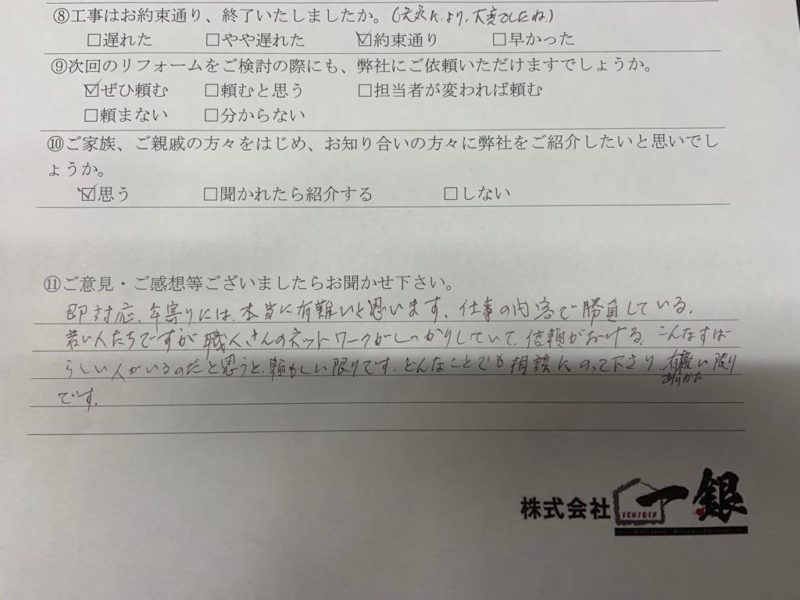 ⑧工事はお約束通り、終了いたしましたか。(天気により、大変でしたね)
□遅れた □やや遅れた ☑約束通り □早かった
⑨次回のリフォームをご検討の際にも、弊社にご依頼いただけますでしょうか。
☑ぜひ頼む □頼むと思う □担当者が変われば頼む
□頼まない □分からない
⑩ご家族、ご親戚の方々をはじめ、お知り合いの方々に弊社をご紹介したいと思いでし
ょうか。
☑思う □聞かれたら紹介する □しない
⑪ご意見・ご感想等ございましたらお聞かせ下さい。
即対応、年寄りには、本当に有難いと思います、仕事の内容で勝負している。
若い人たちですが職人さんのネットワークがしっかりしていて、信頼がおける。こんなすば
らしい人がいるのだと思うと、頼もしい限りです。どんなことでも相談にのって下さり、有難い限り
ありがた
です。
株式会社 一銀
ICHIGIN